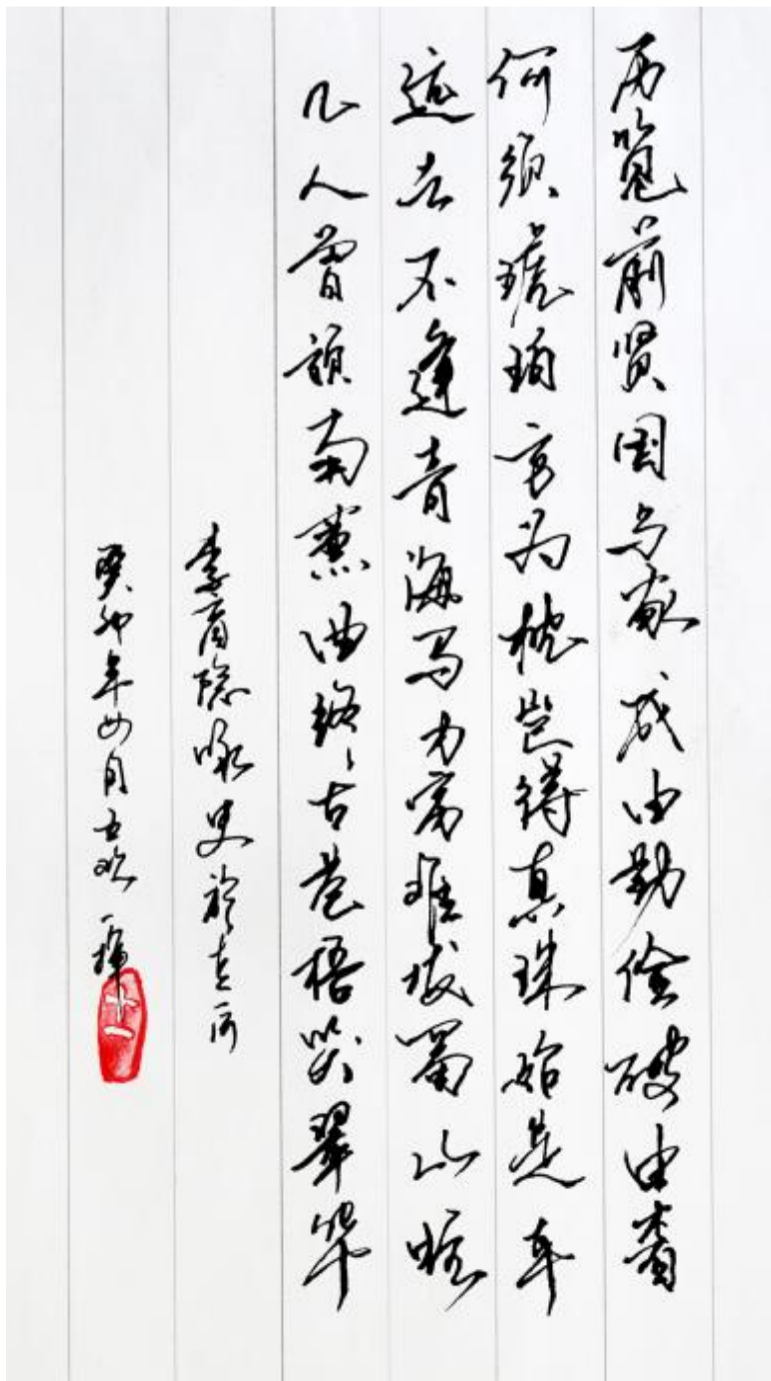 历览前贤国与家成由勤俭破由奢
何须琥珀方为枕岂得真珠始是车
运去不逢青海马力穷难拔蜀山蛇
几人曾预南薰曲终古苍梧哭翠华
李商隐咏史
癸卯年四月
十一